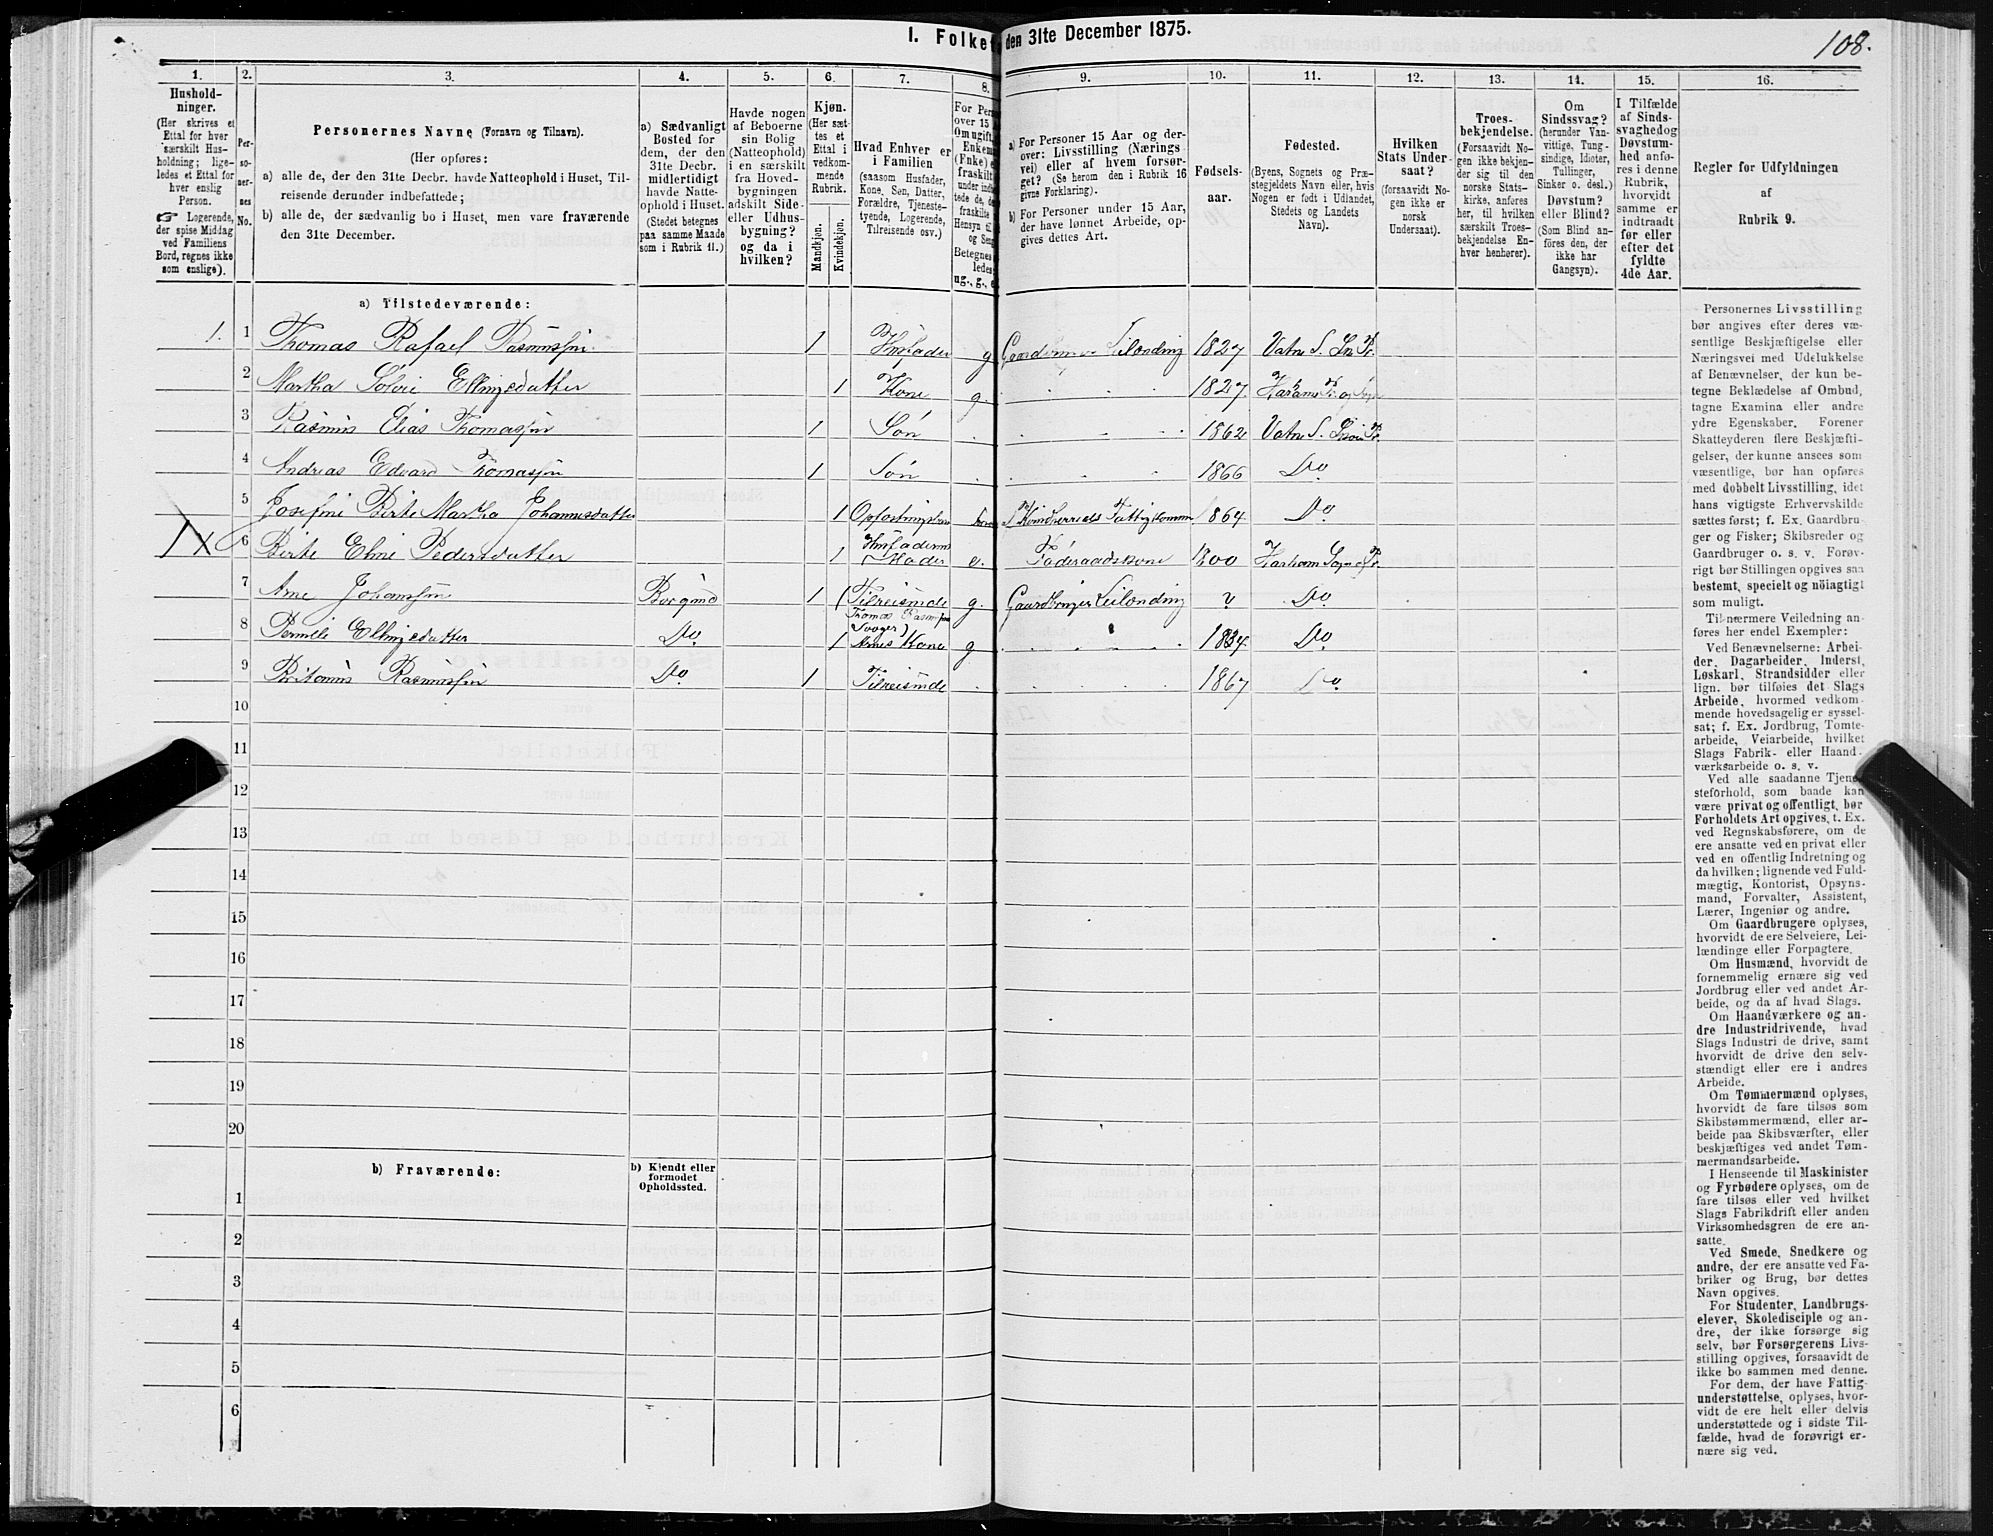 I. Folket
den 31te December 1875.
108.
1.
2.
3.
4.
5.
6.
7.
8.
9.
10.
11.
12.
13.
14.
15.
16.
Hushold-
ninger.
(Her skrives et
Ettal for hver
særskilt Hus-
holdning; lige-
ledes et Ettal for
hver enslig
Person.
☞ Logerende,
der spise Middag
ved Familiens
Bord, regnes ikke
som enslige).
Per-
so-
ner-
nes
No.
Personernes Navne (Fornavn og Tilnavn).
(Her opføres:
a) alle de, der den 31te Decbr. havde Natteophold i Huset, Til-
reisende derunder indbefattede;
b) alle de, der sædvanlig bo i Huset, men vare fraværende
den 31te December.
a) Sædvanligt
Bosted for
dem, der den
31te Decbr.
midlertidigt
havde Natte-
ophold i Huset.
(Stedet betegnes
paa samme Maade
som i Rubrik 11.)
Havde nogen
af Beboerne
sin Bolig
(Natteophold)
i en særskilt
fra Hoved-
bygningen
adskilt Side-
eller Udhus-
bygning?
og da i
hvilken?
Kjøn.
(Her sæt-
tes et
Ettal i
vedkom-
mende
Rubrik.
Mandkjøn.
Kvindekjøn.
Hvad Enhver er
i Familien
(saasom Husfader,
Kone, Søn, Datter,
Forældre, Tjeneste-
tyende, Logerende,
Tilreisende osv.)
For Pers
over 15
Om ugift,
Enkem
(Fnke) e
fraskilt
under ind
tede de, d
fraskilte
Hensyn til
og Sen
Betegnes
ledes:
ug., g., e
a) For Personer 15 Aar og der-
over: Livsstilling (Nærings-
vei) eller af hvem forsør-
get? (Se herom den i Rubrik 16
givne Forklaring).
b) For Personer under 15 Aar,
der have lønnet Arbeide, op-
gives dettes Art.
Fødsels-
aar.
Fødested.
(Byens, Sognets og Præ-
stegjeldets Navn eller, hvis
Nogen er født i Udlandet,
Stedets og Landets
Navn).
Hvilken
Stats Under-
saat?
(forsaavidt No-
gen ikke er
norsk
Undersaat).
Troes-
bekjendelse.
(Forsaavidt No-
gen ikke bekjen-
der sig til den
norske Stats-
kirke, anføres
her, til hvilken
særskilt Troes-
bekjendelse En-
hver henhører).
Om
Sindssvag?
(herunder Van-
vittige, Tung-
sindige, Idioter,
Tullinger,
Sinker o. desl.)
Døvstum?
eller Blind?
(Som Blind an-
føres den, der
ikke har
Gangsyn).
I Tilfælde
af Sinds-
svaghedog
Døvstum-
hed anfø-
res i denne
Rubrik,
hvorvidt
samme er
indtraadt
før eller
efter det
fyldte
4de Aar.
Regler for Udfyldningen
af
Rubrik 9.
a) Tilstedeværende:
1. 1 Thomas Rafael Rasmussen 1 Husfader g Gaardbruger Leilænding 1827 Vatne S.
2 Martha Ellingsdatter 1 Kone g. 1827 Harams Pr og Sogn
3 Rasmus Elias Thomassen 1 Søn 1862 Vatne S.
4 Andreas Edvard Thomassen 1 Søn 1866 Do
5 Josefine Birte Martha Johannesdatter 1 1864 Do
6 Birte Eline Pedersdatter 1 Husfaderens Moder e. Føderaadskone 1800 Harham Sogn
7 Arne Johansen Borgund 1 (Tilreisende g. Gaardbruger Leilænding ? Do
Thomas Rasmussens Svoger)
8 Pernele Ellingsdatter Do 1 Arnes Kone g 1834 Do
9 Rasmussen Do 1 Tilreisende 1867 Do
10
11
12
13
14
15
16
17
18
19
20
b) Fraværende:
b) Kjendt eller
formodet
Opholdssted.
1
2
3
4
5
6
Personernes Livsstilling
bør angives efter deres væ-
sentlige Beskjæftigelse eller
Næringsvei med Udelukkelse
af Benævnelser, der kun be-
tegne Beklædelse af Ombud,
tagne Examina eller andre
ydre Egenskaber. Forener
Skatteyderen flere Beskjæfti-
gelser, der kunne ansees som
væsentlige, bør han opføres
med dobbelt Livsstilling, idet
hans vigtigste Erhvervskilde
sættes først; f. Ex. Gaardbru-
ger og Fisker; Skibsreder og
Gaardbruger o. s. v. Forøv-
rigt bør Stillingen opgives saa
bestemt, specielt og nöiagtigt
som muligt.
Til nærmere Veiledning an-
føres her endel Exempler:
Ved Benævnelserne: Arbei-
der, Dagarbeider, Inderst,
Løskarl, Strandsidder eller
lign. bør tilføies det Slags
Arbeide, hvormed vedkom-
mende hovedsagelig er syssel-
sat; f. Ex. Jordbrug, Tomte-
arbeide, Veiarbeide, hvilket
Slags Fabrik- eller Haand-
værksarbeide o. s. v.
Ved alle saadanne Tjene-
steforhold, som baade kan
være privat og offentligt, bør
Forholdets Art opgives, t. Ex.
ved Regnskabsførere, om de
ere ansatte ved en privat eller
ved en offentlig Indretning og
da hvilken; lignende ved Fuld-
mægtig, Kontorist, Opsyns-
mand, Forvalter, Assistent,
Lærer, Ingeniør og andre.
Om Gaardbrugere oplyses,
hvorvidt de ere Selveiere, Lei-
lændinge eller Forpagtere.
Om Husmænd, hvorvidt de
fornemmelig ernære sig ved
Jordbrug eller ved andet Ar-
beide, og da af hvad Slags.
Om Haandværkere og an-
dre Industridrivende, hvad
Slags Industri de drive, samt
hvorvidt de drive den selv-
stændigt eller ere i andres
Arbeide.
Om Tømmermænd oplyses,
hvorvidt de fare tilsøs som
Skibstømmermænd, eller ar-
beide paa Skibsværfter, eller
beskjæftiges ved andet Tøm-
mermandsarbeide.
I Henseende til Maskinister
og Fyrbødere oplyses, om de
fare tilsøs eller ved hvilket
Slags Fabrikdrift eller anden
Virksomhedsgren de ere an-
satte.
Ved Smede, Snedkere og
andre, der ere ansatte ved Fa-
briker og Brug, bør dettes
Navn opgives.
For Studenter, Landbrugs-
elever, Skoledisciple og an-
dre, der ikke forsørge sig
selv, bør Forsørgerens Livs-
stilling opgives, forsaavidt de
ikke bo sammen med denne.
For dem, der have Fattig-
understøttelse, oplyses, hvor-
vidt de ere helt eller delvis
understøttede og i sidste Til-
fælde, hvad de forøvrigt er-
nære sig ved.